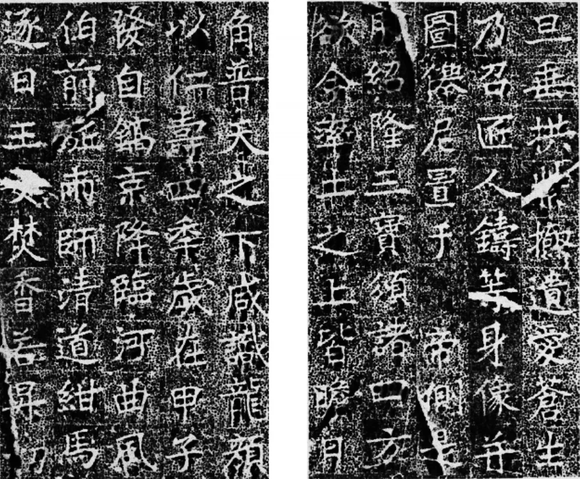 旦垂拱遺愛蒼生
乃召匠人鑄等身像并
圖僊尼置于帝側是
用紹隆三寶頒諸四方
欲令率土之上皆瞻日
角普天之下咸識龍顏
以仁壽四年歲在甲子
發自鎬京降臨河曲風
伯前旌雨師清道紺馬
逐日王焚香若昇忉